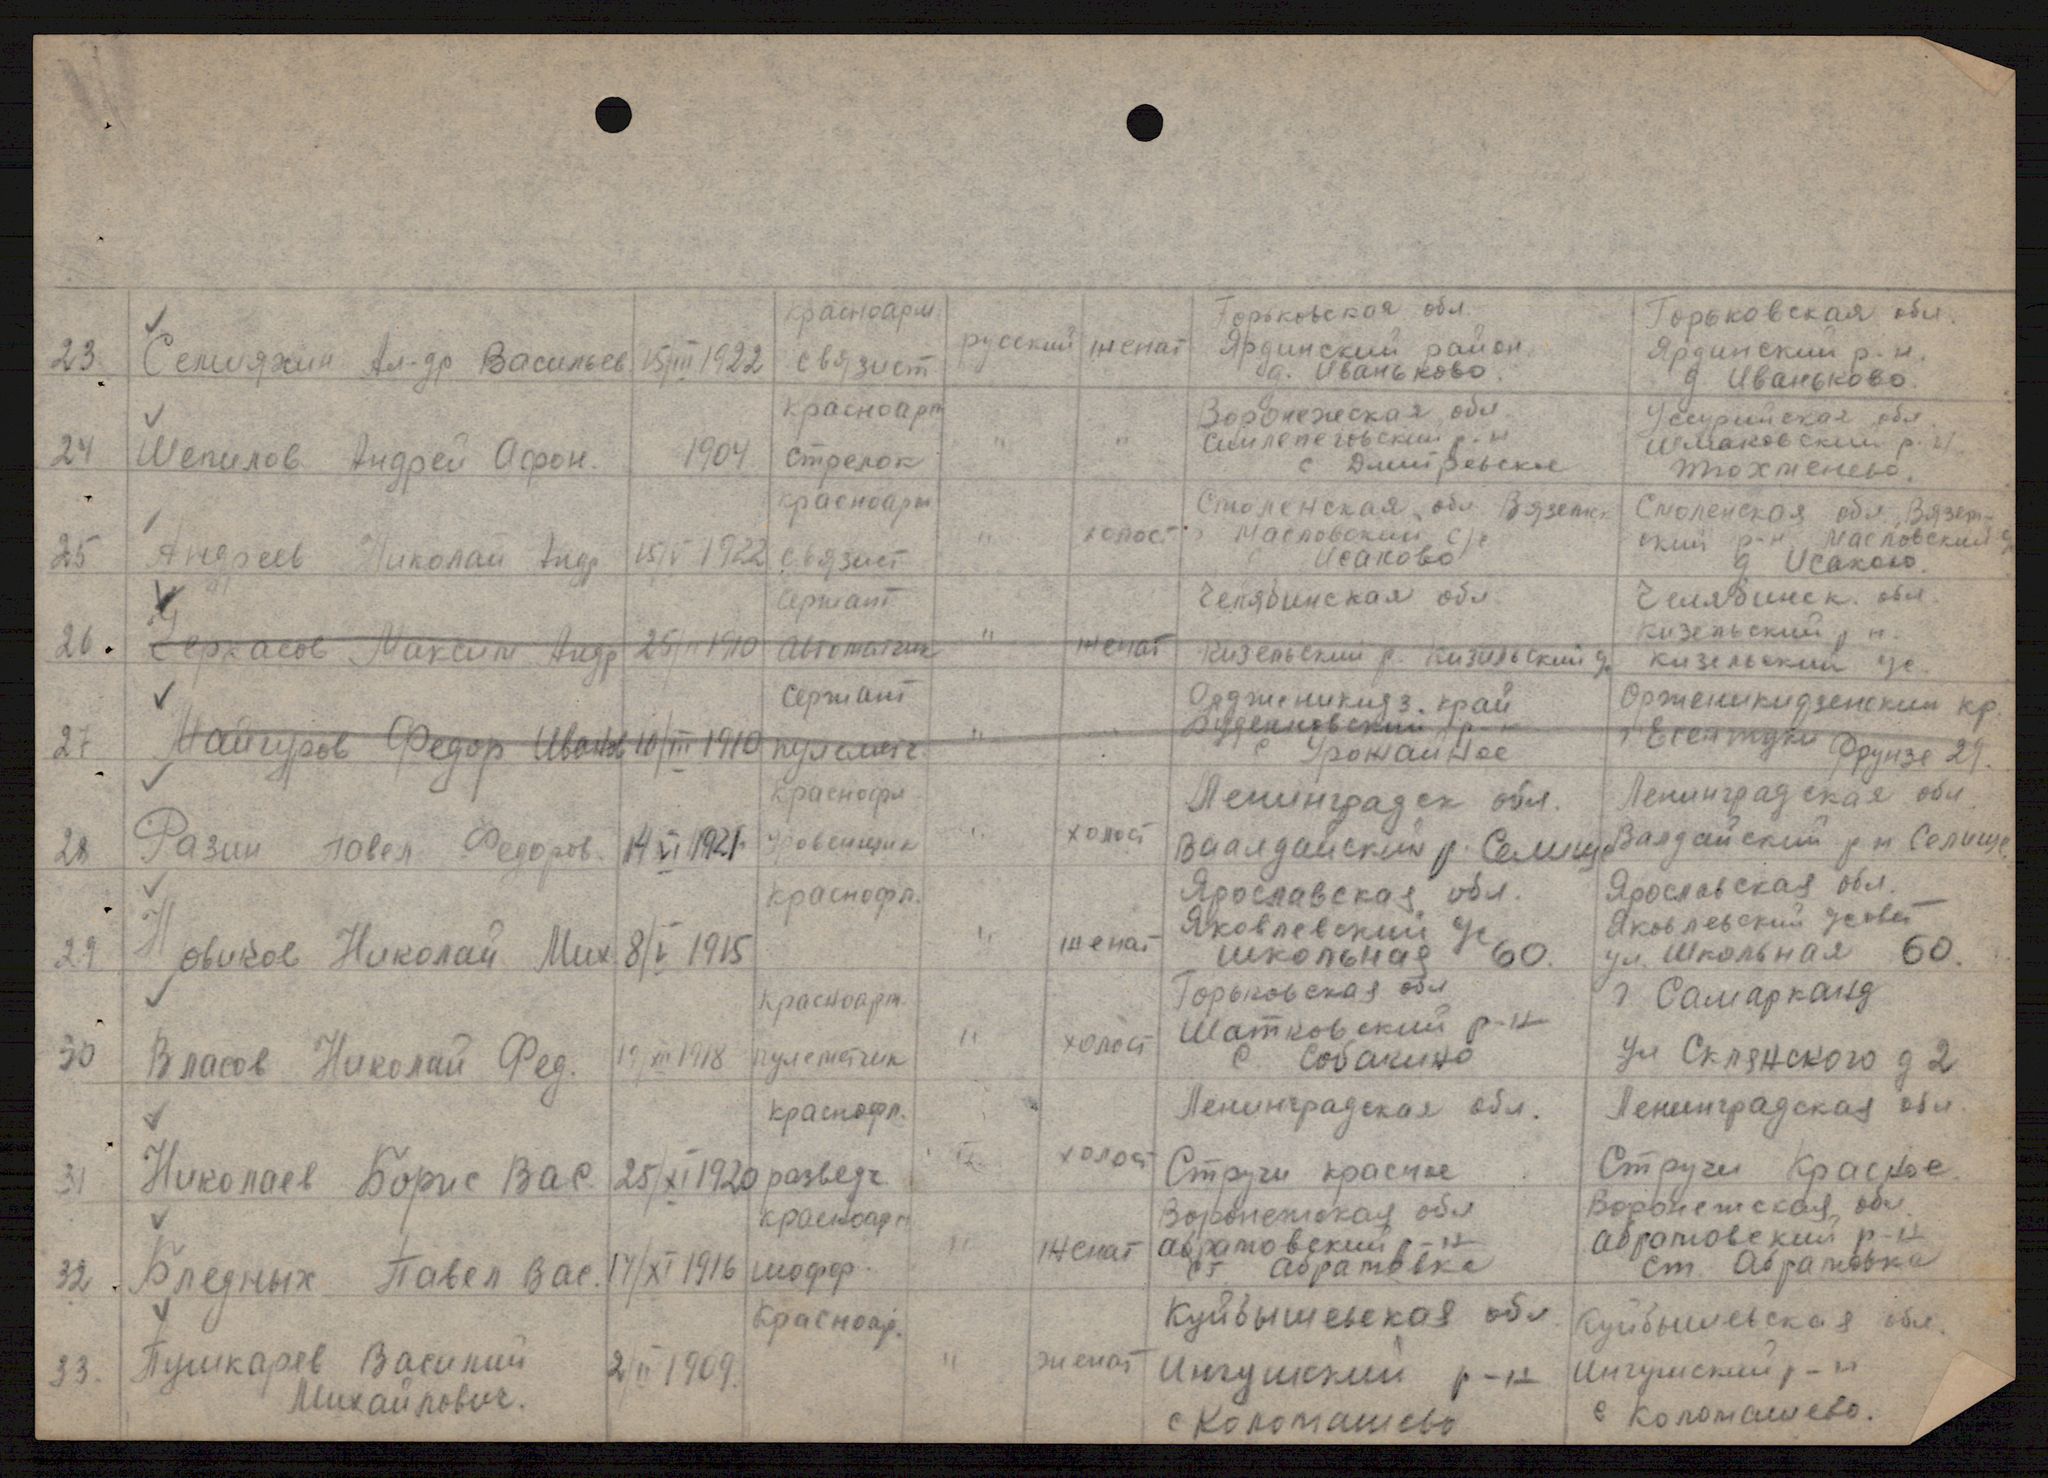 23. Семияхин Ал-др Васильев 15/III 1922 красноарм. связист русский женат Горьковская обл. Ярдинский район. д. Иваньково. Горьковская обл. Ярдинский р-н. д Иваньково.
24 Шепилов Андрей Афон. 1904 красноарм стрелок " " Воронежская обл. р-н с Дмитревское Уссурийская обл. Шмаковский р-н.
25 Андреев Николай Андр 15/V 1922 красноарм связист " холост Смоленская обл. Вяземск Масловский с/с Исаково Смоленская обл. Вязем- ский р-н Масловский д Исаково.
26. Черкасов Максим Андр 25/II 1910 Сержант Автоматчик " женат Челябинская обл. Кизельский р. Кизильский Челябинск. обл. Кизельский р н. Кизельский ус.
27 Майгуров Федор Иванов 10/III 1910 Сержант пулеметч. " " Орджоникидз. край Буденновский р-н с Урожайное Орженикидзенский кр. г Есентуки Фрунзе 29.
28 Разин Павел Федоров. 14 VI 1921. Краснофл " холост Ленинградск обл. Ваалдайский р. Селище Ленинградская обл Валдайский р н Селище.
29 Новиков Николай Мих 8/V 1915 Краснофл. " женат Ярославская обл. Яковлевский Ус школьная 60. Ярославская обл. Яковлевский Усовет ул. Школьная 60.
30 Власов Николай Фед. 19/XII 1918 Красноарм. пулеметчик " холост Горьковская обл Шатковский р-н с. Собакино г Самарканд Ул Склянского д 2
31 Николаев Борис Вас. 25/XI 1920 краснофл. разведч. " холост Ленинградская обл. Стручи красное Ленинградская обл. Стручи Красное
32. Бледных Павел Вас. 17/XI 1916 красноарм шофер. " женат Воронежская обл Абрамовский р-н ст. Абрамовка Воронежская обл. Абрамовский р-н ст. Абрамовка
33. Пушкарев Василий Михайлович. 2/II 1909. Красноар. " женат Куйбышевская обл. Ингушский р-н с Коломашево Куйбышевская обл. Ингушский р-н с Коломашево.